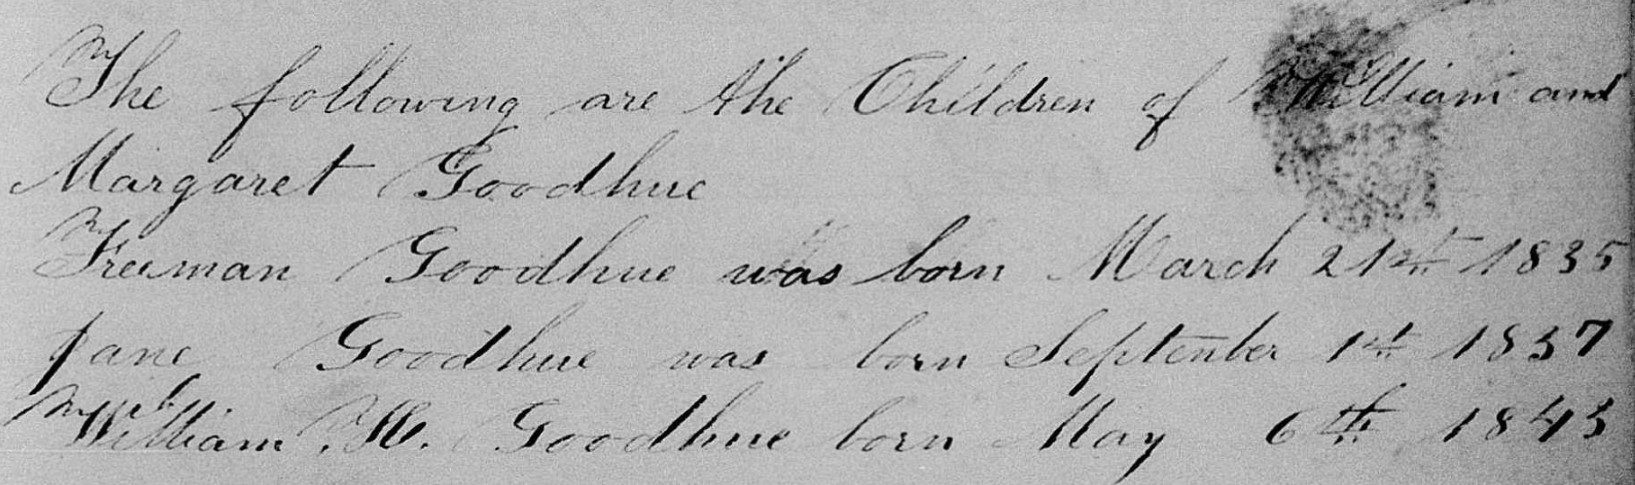 The following are the Children of William and
Margaret Goodhue
Freeman Goodhue was born March 21st 1835
Jane Goodhue was born September 1st 1837
William H. Goodhue born May 6th 1843